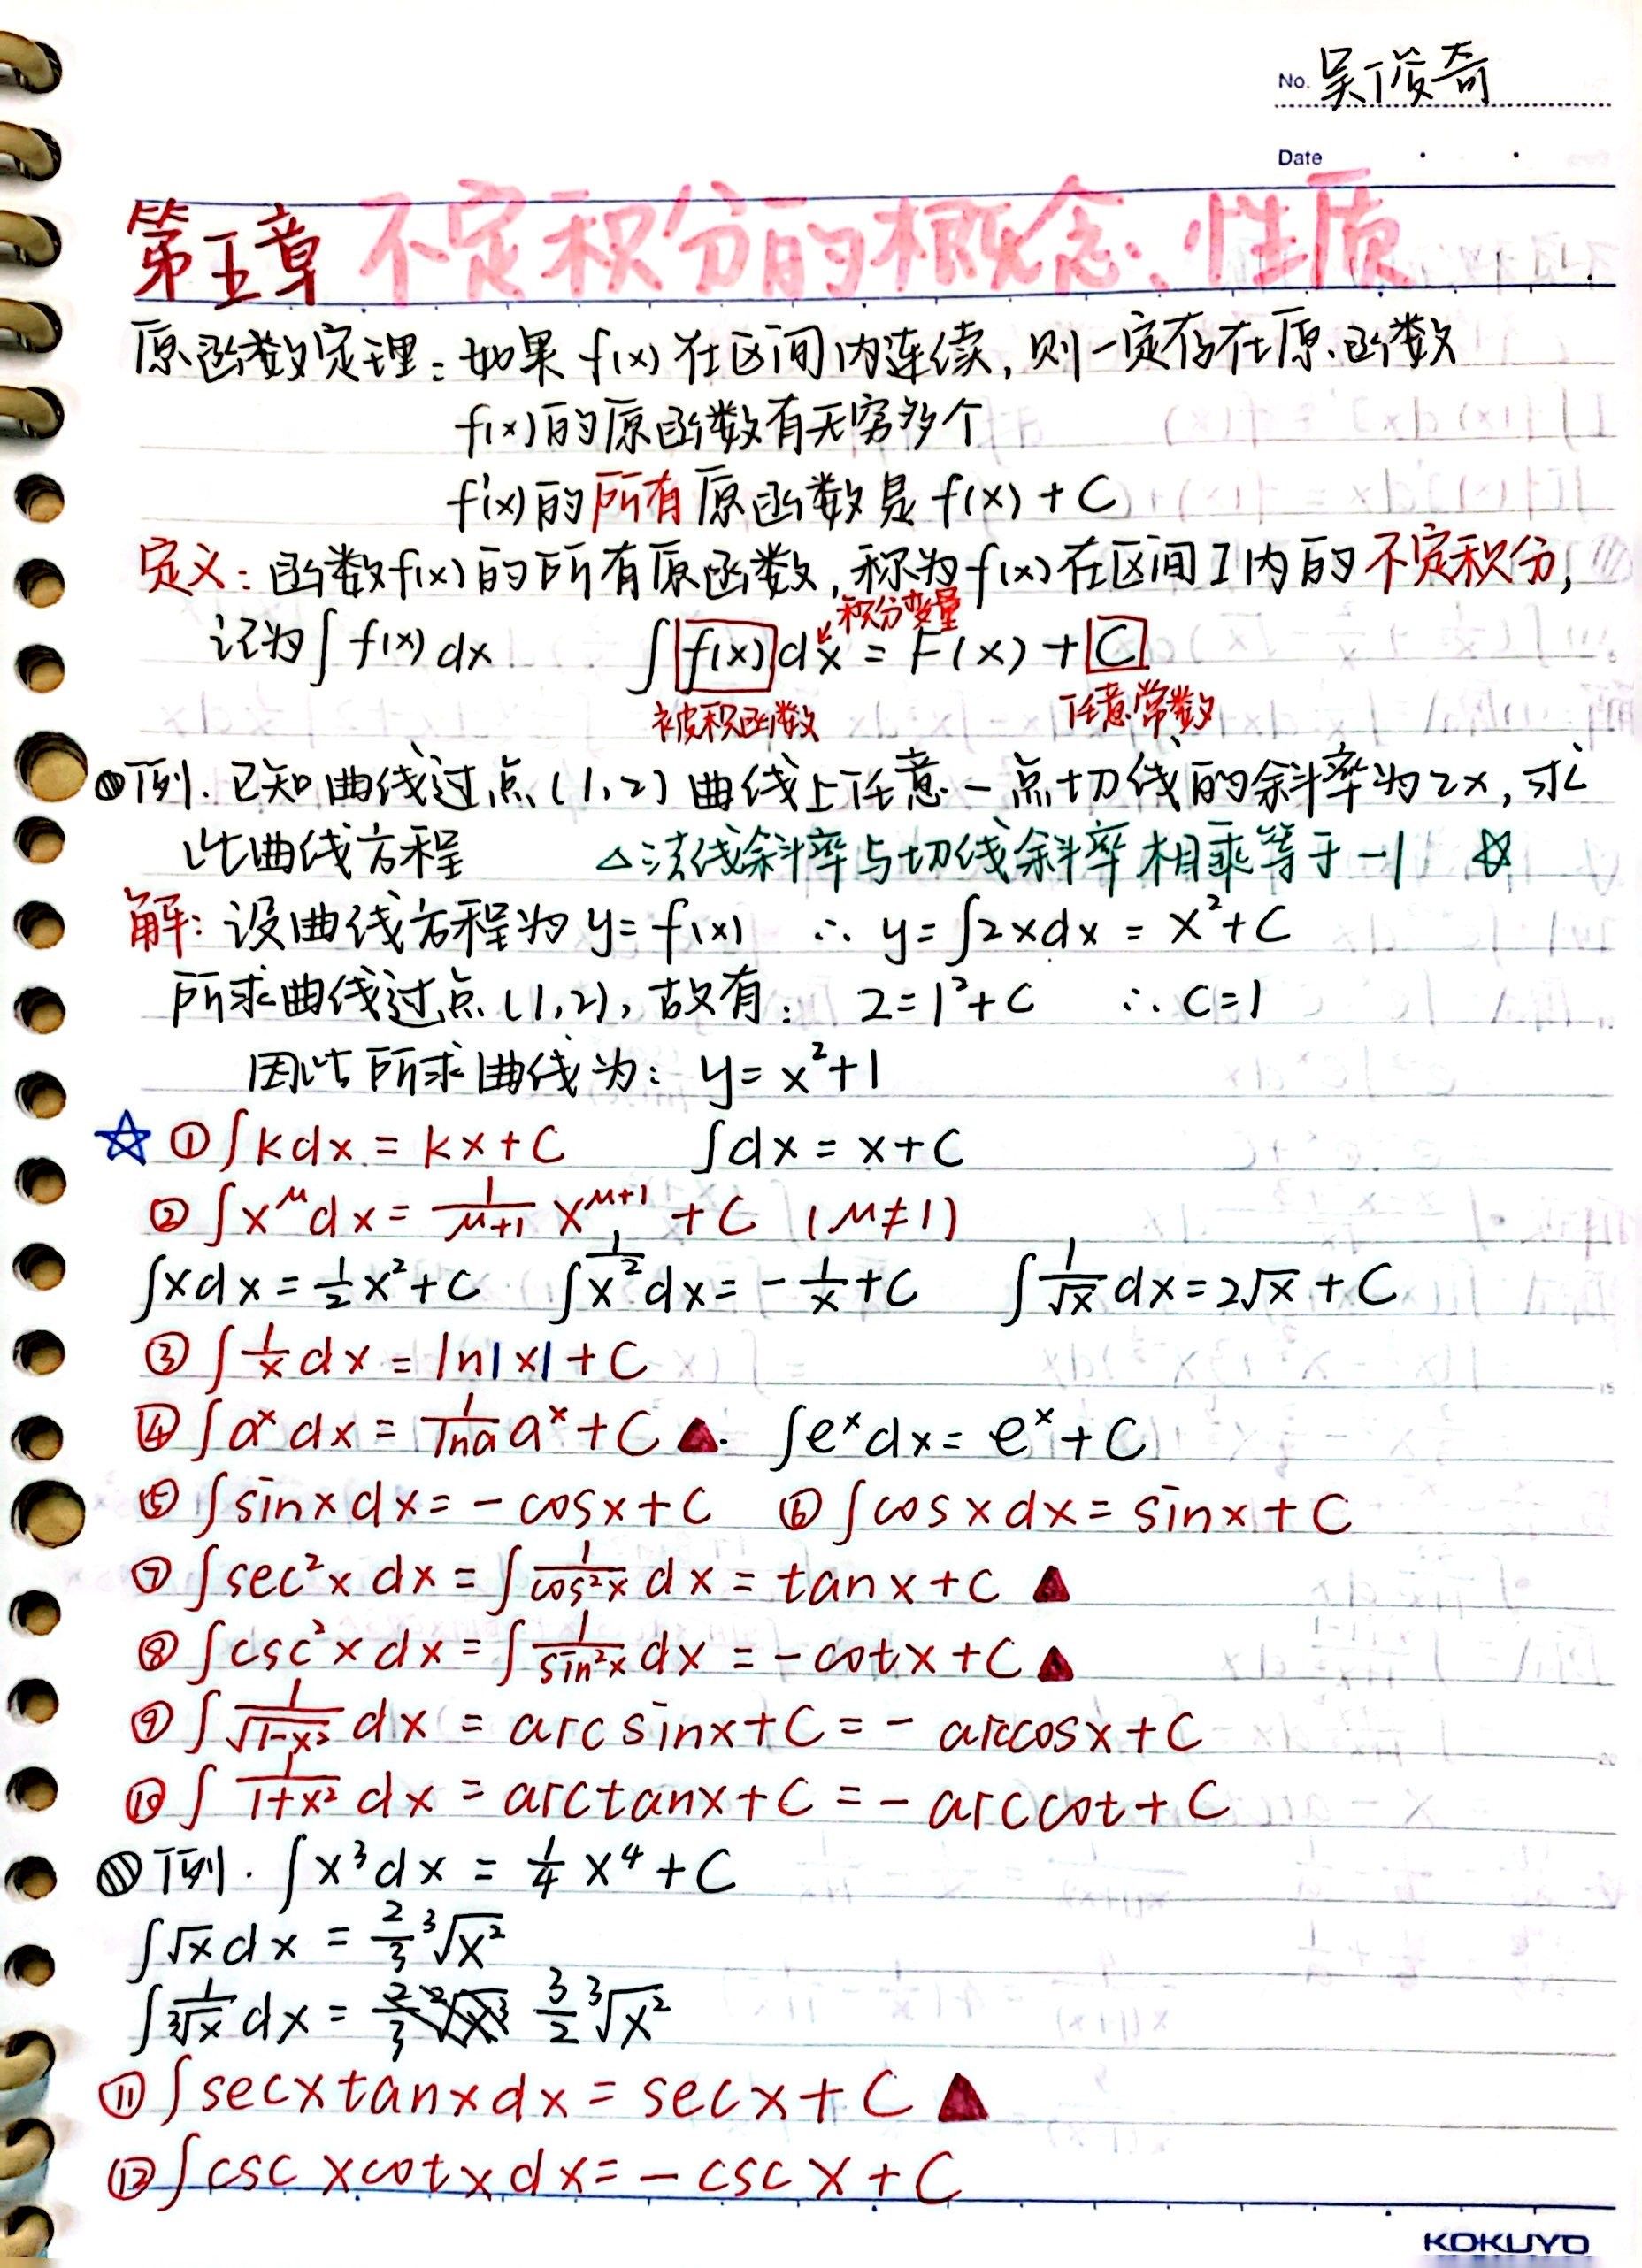 No. 吴俊奇
Date
第五章 不定积分的概念、性质
原函数定理：如果 f(x) 在区间内连续，则一定存在原函数
f(x)的原函数有无穷多个
f'(x)的所有原函数是 f(x) + C
定义：函数f(x)的所有原函数，称为f(x)在区间I内的不定积分，
积分变量
记为∫f(x)dx ∫f(x)dx = F(x) + C
被积函数 任意常数
例. 已知曲线过点(1,2)曲线上任意一点切线的斜率为2x，求
此曲线方程 △法线斜率与切线斜率相乘等于-1 ☆
解：设曲线方程为 y=f(x) ∴ y=∫2xdx = x²+C
所求曲线过点(1,2)，故有： 2=1²+C ∴ C=1
因此所求曲线为：y=x²+1
☆ ①∫kdx = kx+C ∫dx = x+C
②∫x^μ dx = 1/(μ+1) x^(μ+1) + C (μ≠1)
∫xdx = 1/2 x²+C ∫1/x² dx = -1/x+C ∫1/√x dx = 2√x + C
③∫1/x dx = ln|x| + C
④∫a^x dx = 1/lna a^x + C ▲. ∫e^x dx = e^x + C
⑤∫sinxdx = -cosx+C ⑥∫cosxdx = sinx+C
⑦∫sec²x dx = ∫1/cos²x dx = tanx+C ▲
⑧∫csc²x dx = ∫1/sin²x dx = -cotx+C ▲
⑨∫1/√(1-x²) dx = arcsinx+C = - arccosx+C
⑩∫1/(1+x²) dx = arctanx+C = - arccot+C
例. ∫x³dx = 1/4 x⁴ + C
∫√x dx = 2/3 ³√x²
∫1/³√x dx = 3/2 ³√x²
⑪∫secxtanxdx = secx+C ▲
⑫∫cscxcotxdx = -cscx+C
KOKUYO